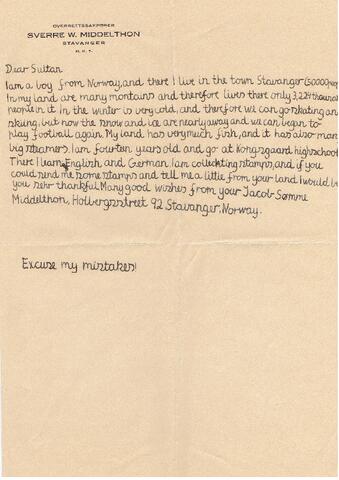 OVERRETTSSAKFØRER
SVERRE W. MIDDELTHON
STAVANGER
Dear Sultan
I am a boy from Norway, and there I live in the town Stavanger (50000
In my land are many montains and therefore lives there only 3,224 thousand
people in it. In the winter is very cold, and therefore we can go skating an
skiing, but now the snow and ice are nearly away and we can begin to
play football again. My land has very much fish, and it has also man
big steamers. I am fourten years old and go at Kongsgaard highschool
There I learn English, and German. I am collekting stamps, and if you
could send me some stamps and tell me a little from your land I would b
you sehr thankful. Many good wishes from your Jacob Sømme
Middelthon, Holbergsstreet 92 Stavanger, Norway.
Excuse my mistakes!